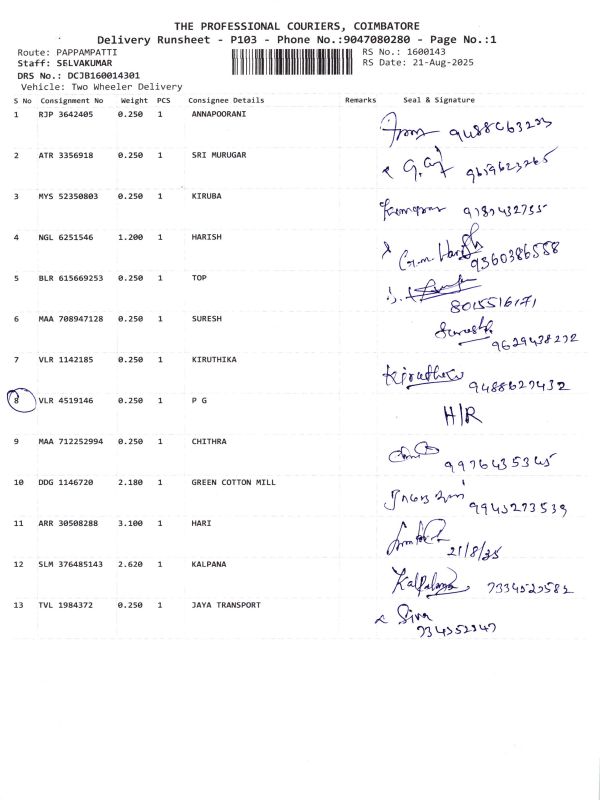 THE PROFESSIONAL COURIERS, COIMBATORE
Delivery Runsheet - P103 - Phone No.:9047080280 - Page No.:1
Route: PAPPAMPATTI RS No.: 1600143
Staff: SELVAKUMAR RS Date: 21-Aug-2025
DRS No.: DCJB160014301
Vehicle: Two Wheeler Delivery
S No Consignment No Weight PCS Consignee Details Remarks Seal & Signature
1 RJP 3642405 0.250 1 ANNAPOORANI
2 ATR 3356918 0.250 1 SRI MURUGAR
3 MYS 52350803 0.250 1 KIRUBA
4 NGL 6251546 1.200 1 HARISH G.M. Harish
9360386588
5 BLR 615669253 0.250 1 TOP
8015516171
6 MAA 708947128 0.250 1 SURESH Suresh
9629438272
7 VLR 1142185 0.250 1 KIRUTHIKA Kiruthika
9488627432
8 VLR 4519146 0.250 1 P G H/R
9 MAA 712252994 0.250 1 CHITHRA
9976435345
10 DDG 1146720 2.180 1 GREEN COTTON MILL
9943273539
11 ARR 30508288 3.100 1 HARI
21/8/25
12 SLM 376485143 2.620 1 KALPANA Kalpana
13 TVL 1984372 0.250 1 JAYA TRANSPORT Siva